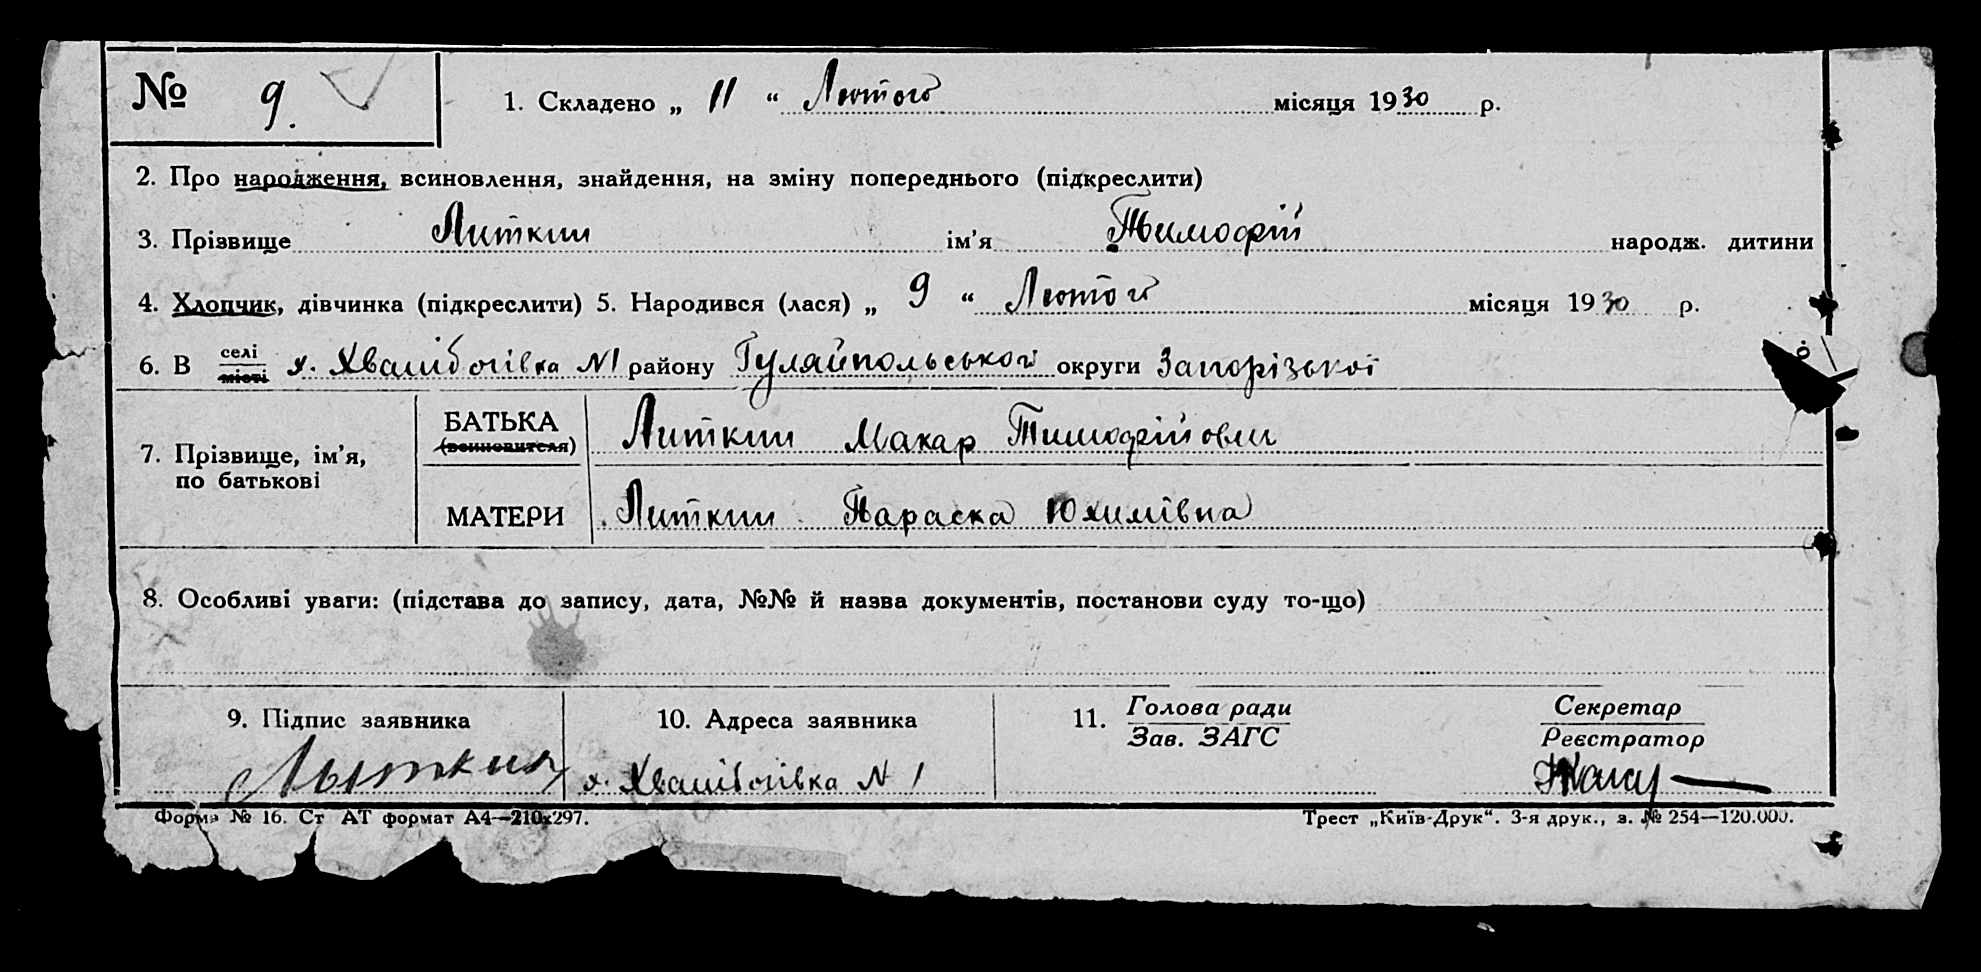 № 9.
1. Складено „ 11 “ Лютого місяця 1930 р.
2. Про народження, всиновлення, знайдення, на зміну попереднього (підкреслити)
3. Прізвище Литкин ім'я Тимофій народж. дитини
4. Хлопчик, дівчинка (підкреслити) 5. Народився (лася) „ 9 “ Лютого місяця 1930 р.
6. В селі
місті х. №1 району Гуляйпольського округи Запорізької
7. Прізвище, ім'я,
по батькові
БАТЬКА
(всиновителя)
Литкин Макар Тимофійович
МАТЕРИ
Литкин Параска Юхимівна
8. Особливі уваги: (підстава до запису, дата, №№ й назва документів, постанови суду то-що)
9. Підпис заявника
Лыткин
10. Адреса заявника
х. N 1
11. Голова ради
Зав. ЗАГС
Секретар
Реєстратор
Форма № 16. Ст АТ формат А4—210х297.
Трест „Київ-Друк“. 3-я друк., з. № 254—120.000.